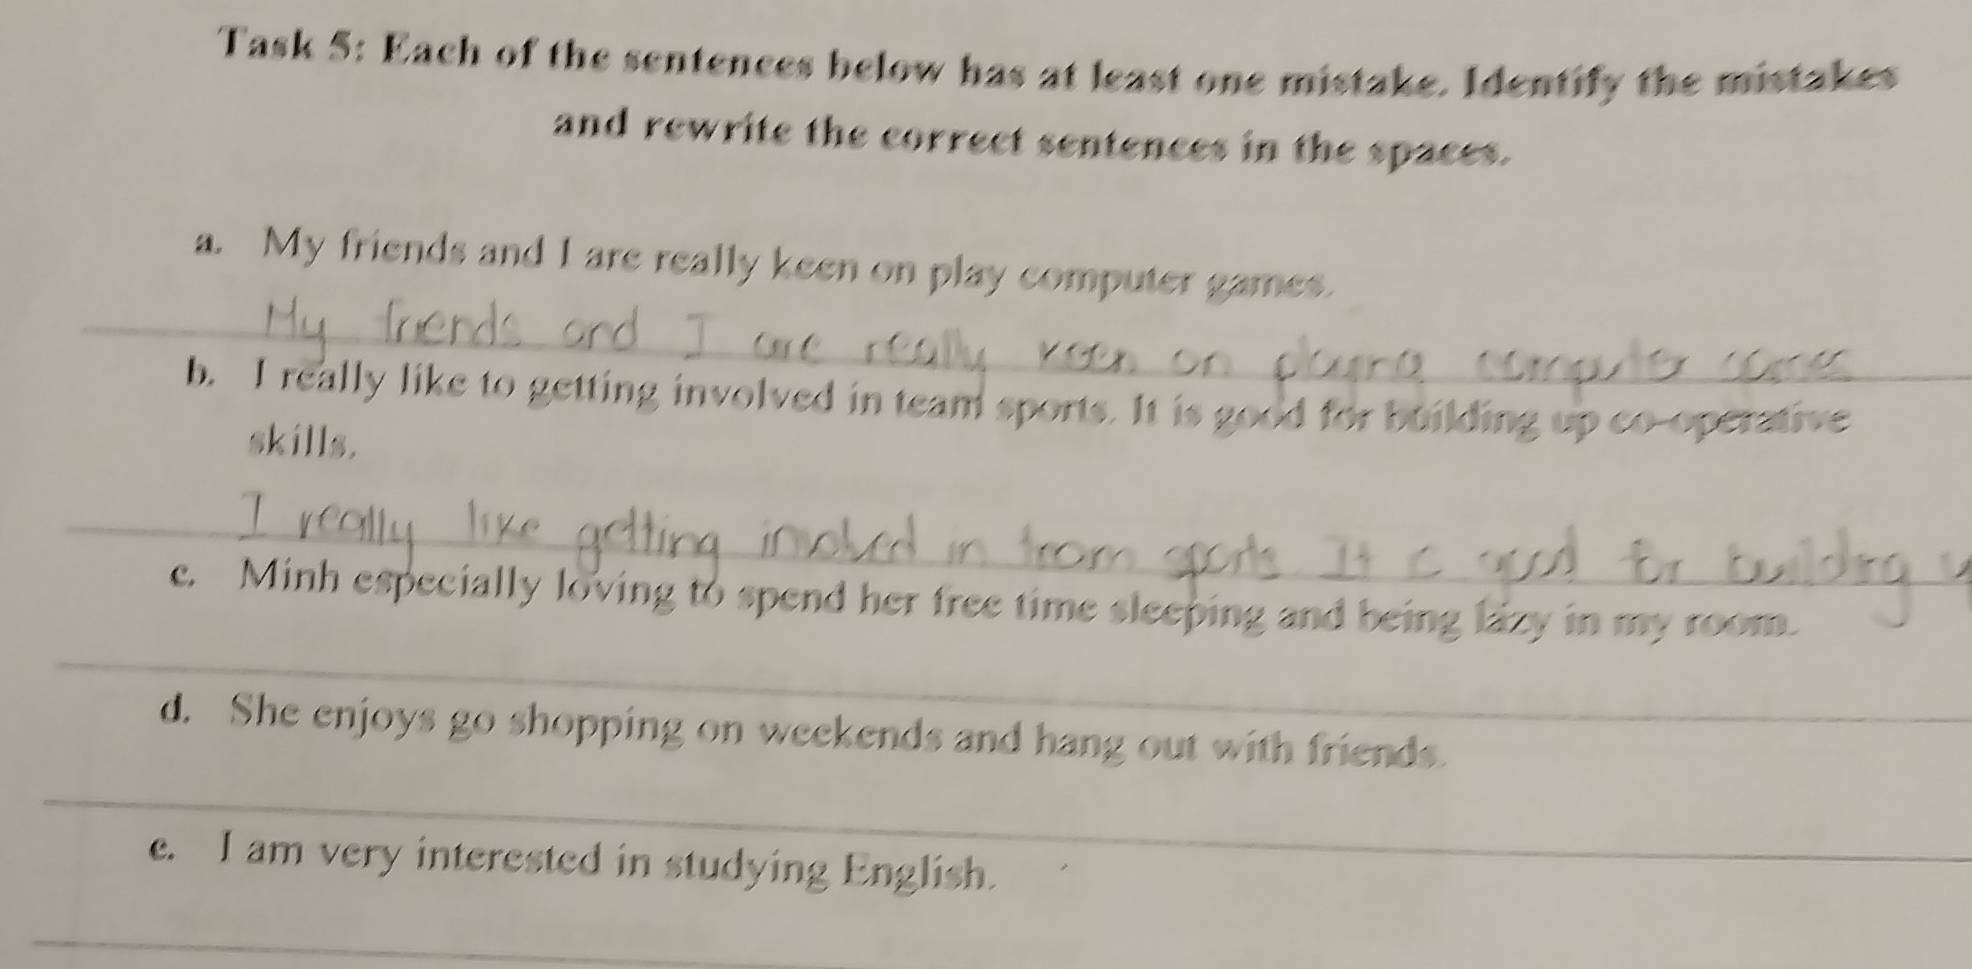 Task 5: Each of the sentences below has at least one mistake. Identify the mistakes
and rewrite the correct sentences in the spaces.
a. My friends and I are really keen on play computer games.
My friends and I are really keen on playing computer games
b. I really like to getting involved in team sports. It is good for building up co-operative
skills.
I really like getting involved in team sports It is good for building
c. Minh especially loving to spend her free time sleeping and being lazy in my room.
d. She enjoys go shopping on weekends and hang out with friends.
e. I am very interested in studying English.